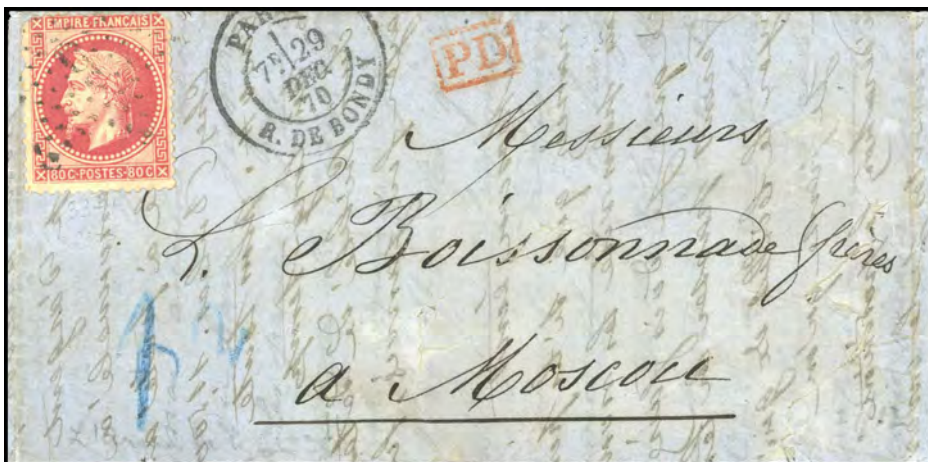 EMPIRE FRANÇAIS
80C·POSTES·80C
7E 29
DEC
70
R. DE BONDY
PD
Messieurs
L. Boissonnade frères
a Moscou